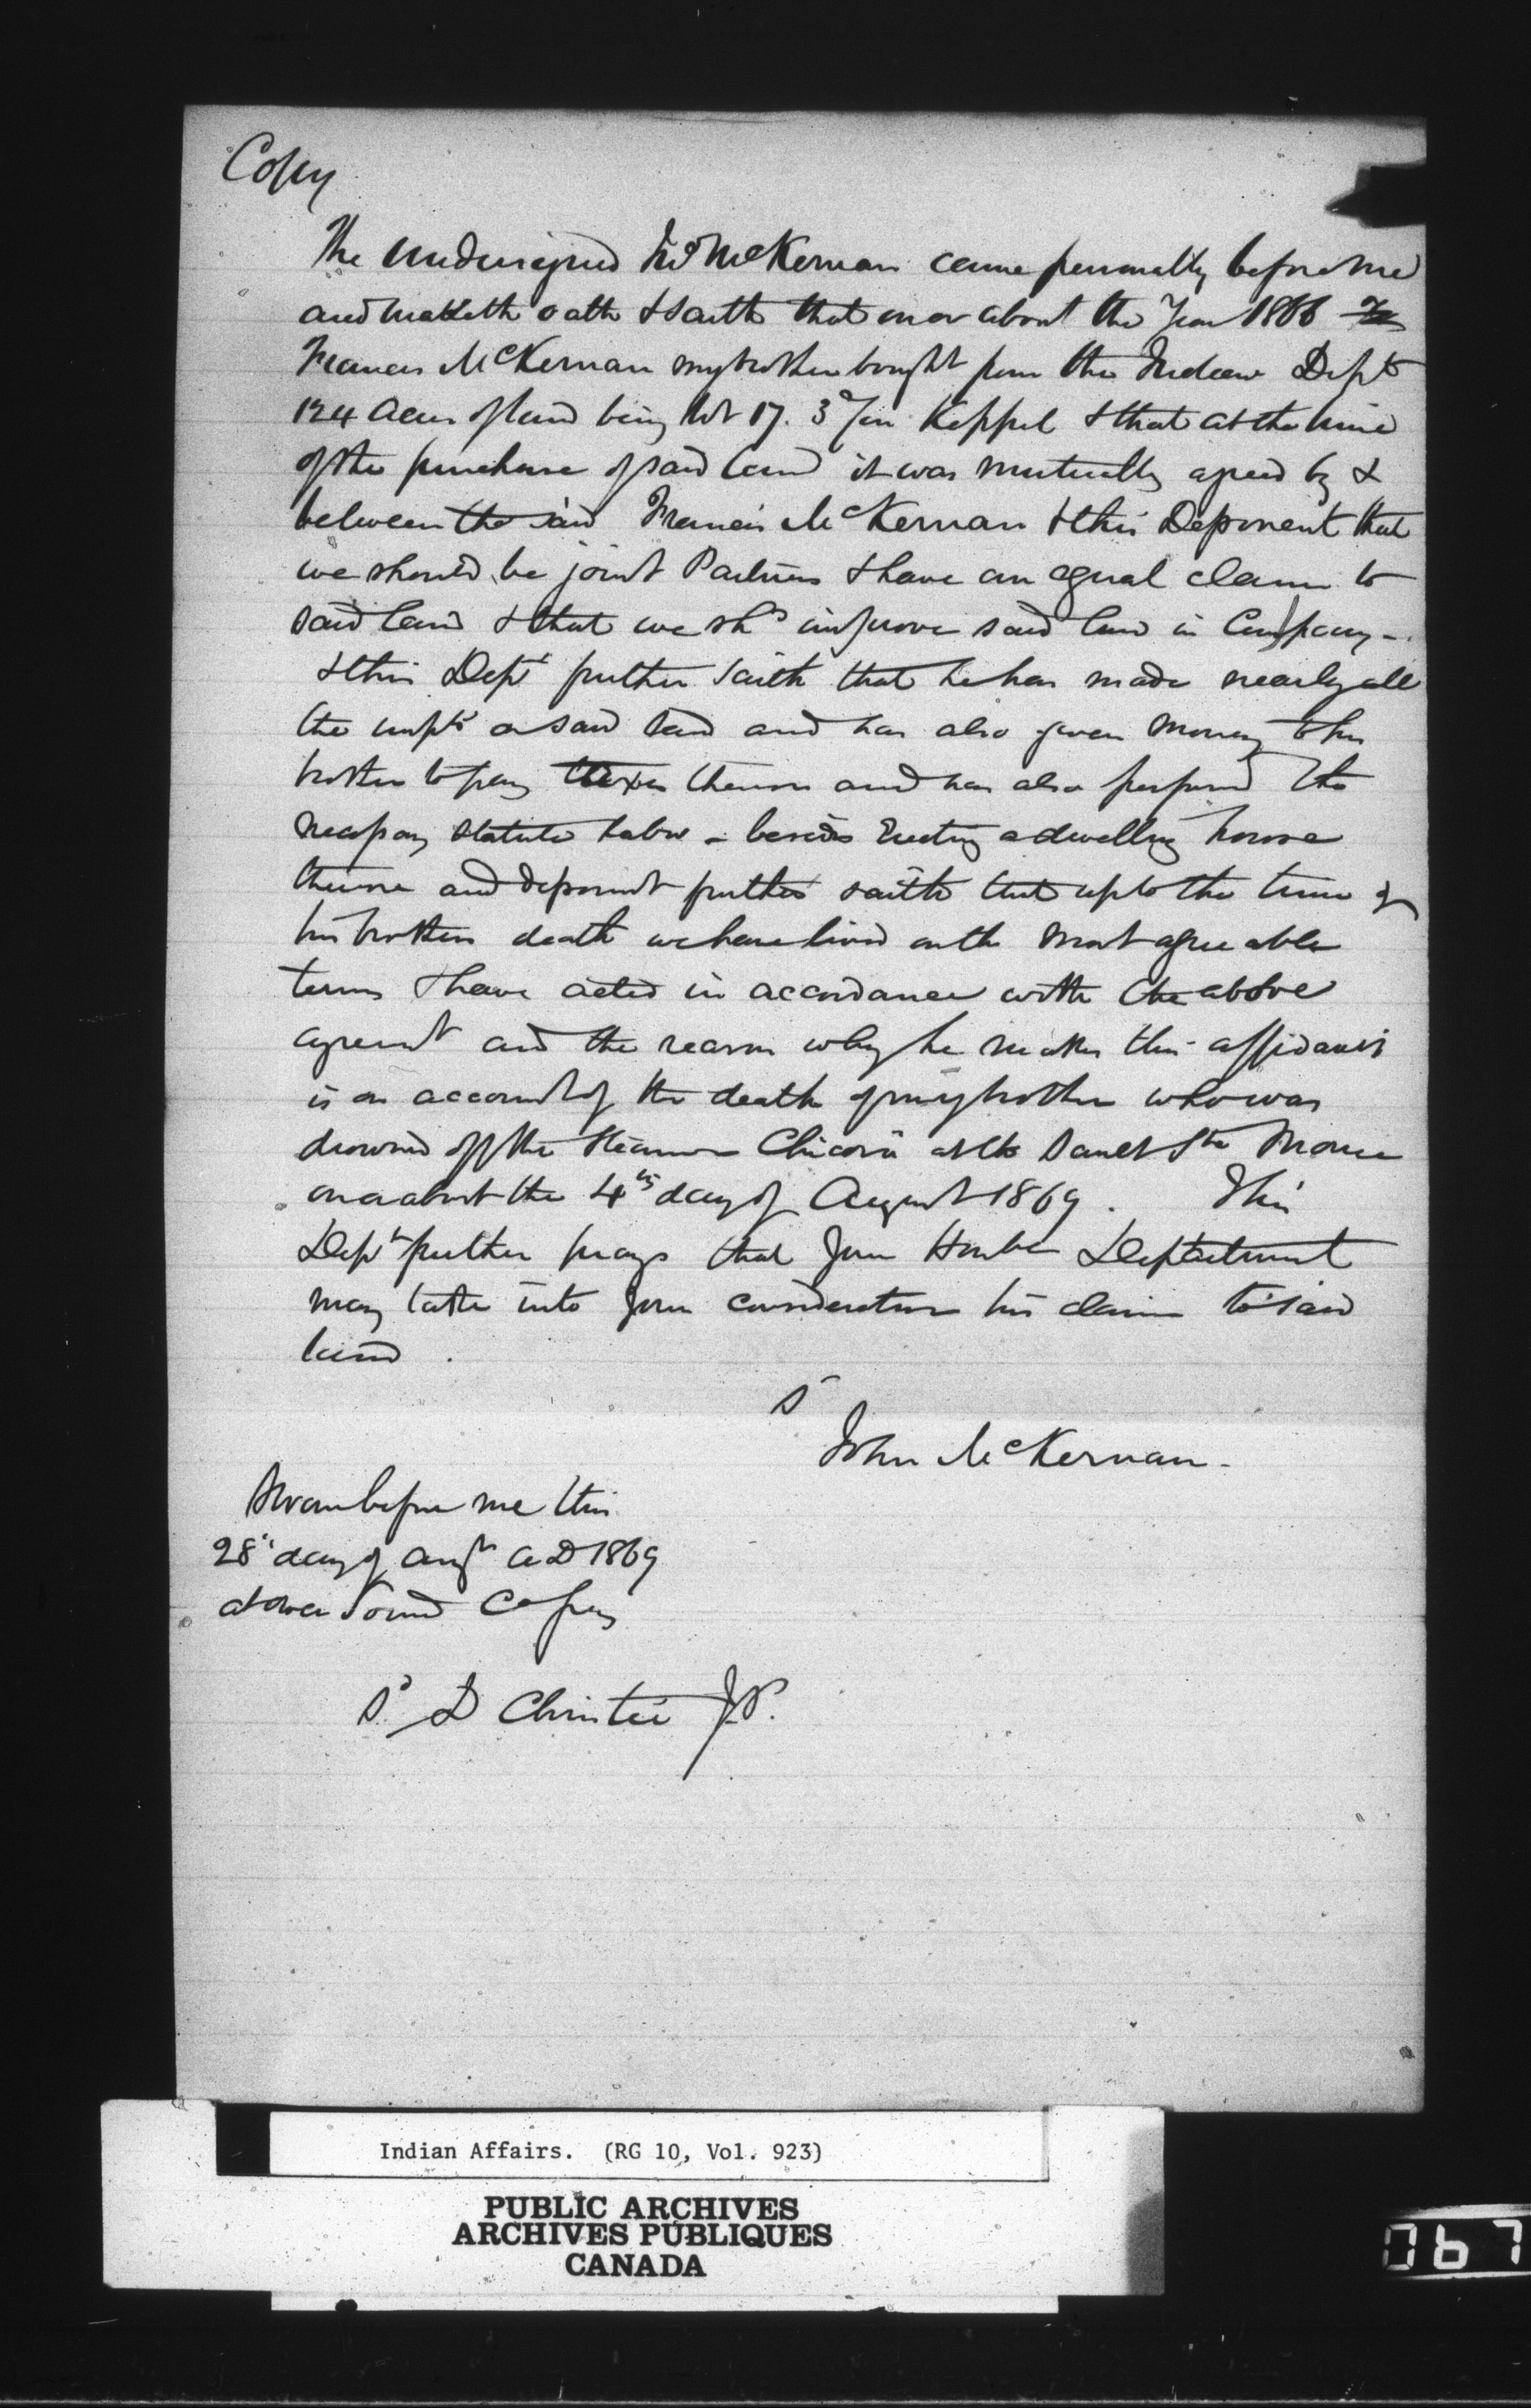 Copy
The Undersigned Jno McKernan came personally before me
and maketh oath & saith that on or about the Year 1866
Francis McKernan my brother bought from the Indian Dept
124 Acres of land being Lot 17. 3 Con Keppel & that at the time
of the purchase of said land it was mutually agreed by &
between the said Francis McKernan & this Deponent that
we should be joint Partners & have an equal claim to
said land & that we shd improve said land in Company -
& this Dept further saith that he has made nearly all
the impts on said land and has also given money to his
brother to pay taxes thereon and has also performed the
necessary statute labor - besides Erecting a dwelling house
thereon and deponent further saith that up to the time of
his brothers death we have lived on the most agreeable
terms & have acted in accordance with the above
agreemt and the reason why he makes this affidavit
is on account of the death of my brother who was
drowned off the Steamer Chicora at the Sault Ste Marie
on or about the 4th day of August 1869. This
Dept further prays that your Honble Department
may take into your consideration his claim to said
land.
Sd
John McKernan.
Sworn before me this
28th day of Augt AD 1869
at Owen Sound Co Grey
Sd D Christie JP.
Indian Affairs. (RG 10, Vol. 923)
PUBLIC ARCHIVES
ARCHIVES PUBLIQUES
CANADA
067